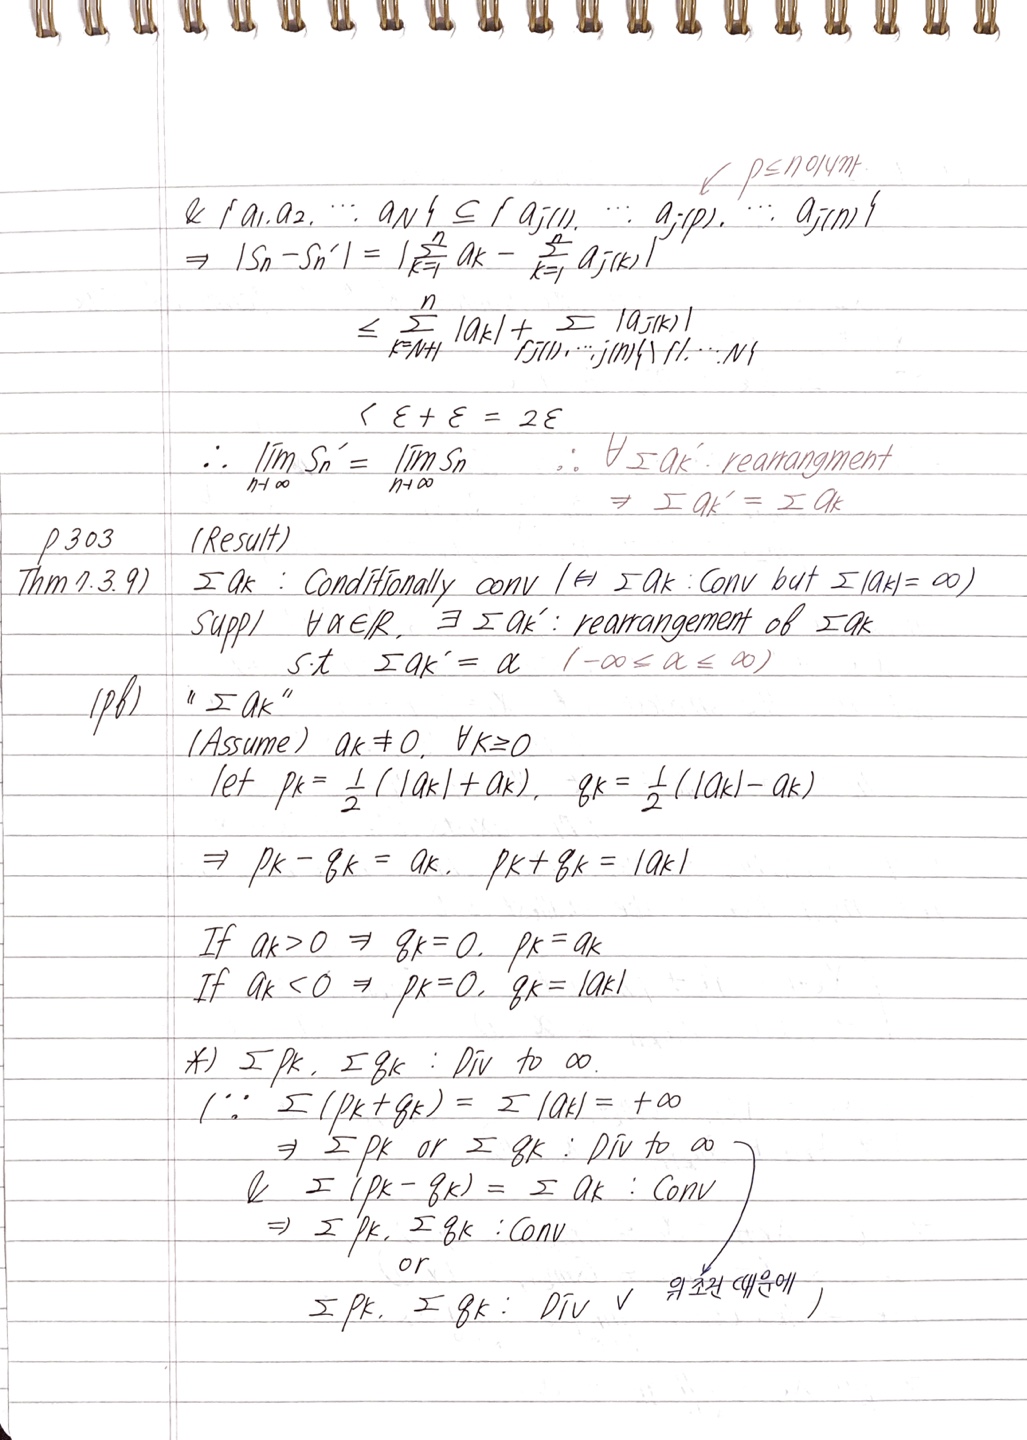 p≤n이냐
& {a1.a2. ⋯ aN} ⊆ {aj(1). ⋯ aj(p). ⋯ aj(n)}
⇒ |Sn-Sn'| = |Σ_{k=1}^{n} ak - Σ_{k=1}^{n} aj(k)|
≤ Σ_{k=N+1}^{n} |ak| + Σ_{{j(1),⋯,j(n)}\{1.⋯N}} |aj(k)|
< ε + ε = 2ε
∴ lim_{n→∞} Sn' = lim_{n→∞} Sn ∴ ∀Σak' rearrangment
⇒ Σak' = Σak
p303 (Result)
Thm 7.3.9) Σak : Conditionally conv (⇔ Σak : Conv but Σ|ak| = ∞)
Supp) ∀α∈ℝ, ∃Σak' : rearrangement of Σak
s.t Σak' = α (-∞ ≤ α ≤ ∞)
(pf) "Σak"
(Assume) ak≠0, ∀k≥0
let pk = 1/2(|ak|+ak), qk = 1/2(|ak|-ak)
⇒ pk - qk = ak. pk + qk = |ak|
If ak>0 ⇒ qk=0. pk=ak
If ak<0 ⇒ pk=0. qk=|ak|
*) Σpk, Σqk : Div to ∞.
(∵ Σ(pk+qk) = Σ|ak| = +∞
⇒ Σpk or Σqk : Div to ∞
& Σ(pk-qk) = Σak : Conv
⇒ Σpk, Σqk : Conv
or
Σpk, Σqk : Div ∨ 위 조건 때문에 )